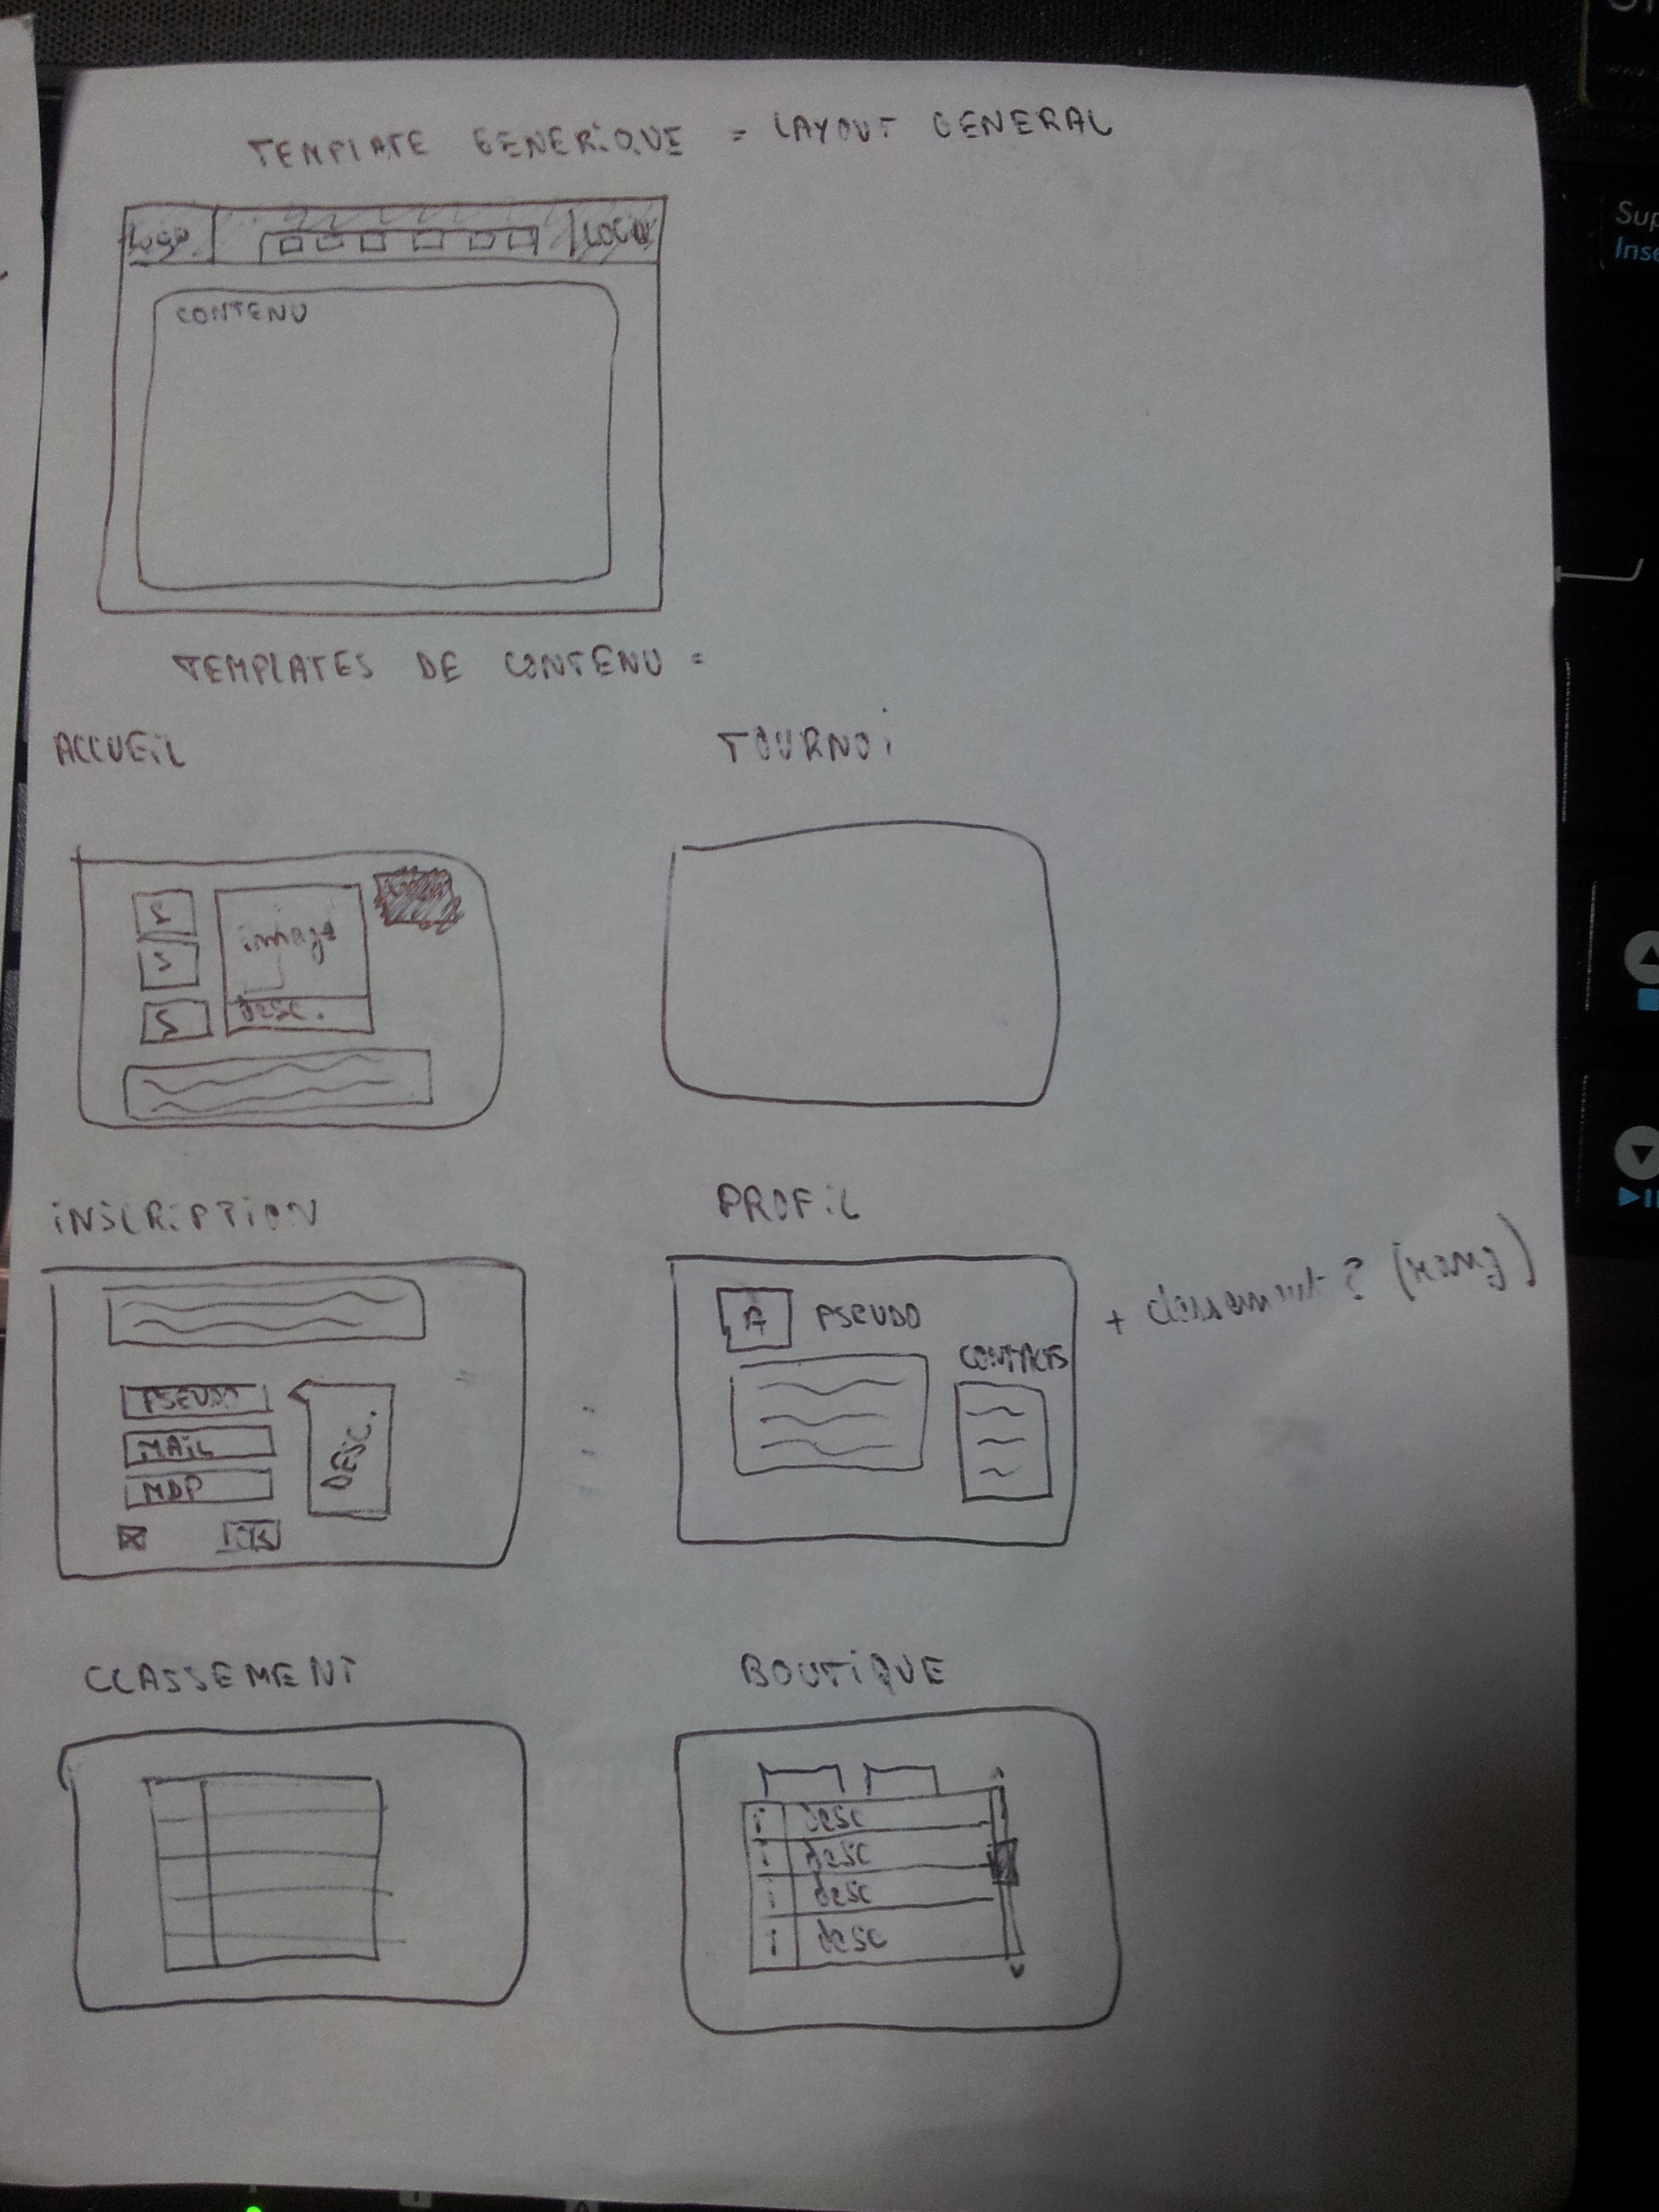 TEMPLATE GENERIQUE = LAYOUT GENERAL
Logo
LOGIN
CONTENU
TEMPLATES DE CONTENU =
ACCUEIL
TOURNOi
S
S
S
image
desc.
iNSCRiPTiON
PROFiL
PSEUDO
MAiL
MDP
DESC.
OK
A
PSEUDO
CONTACTS
+ classement ? (rang)
CLASSEMENT
BOUTiQUE
i desc
i desc
i desc
i desc
Sup
Inse